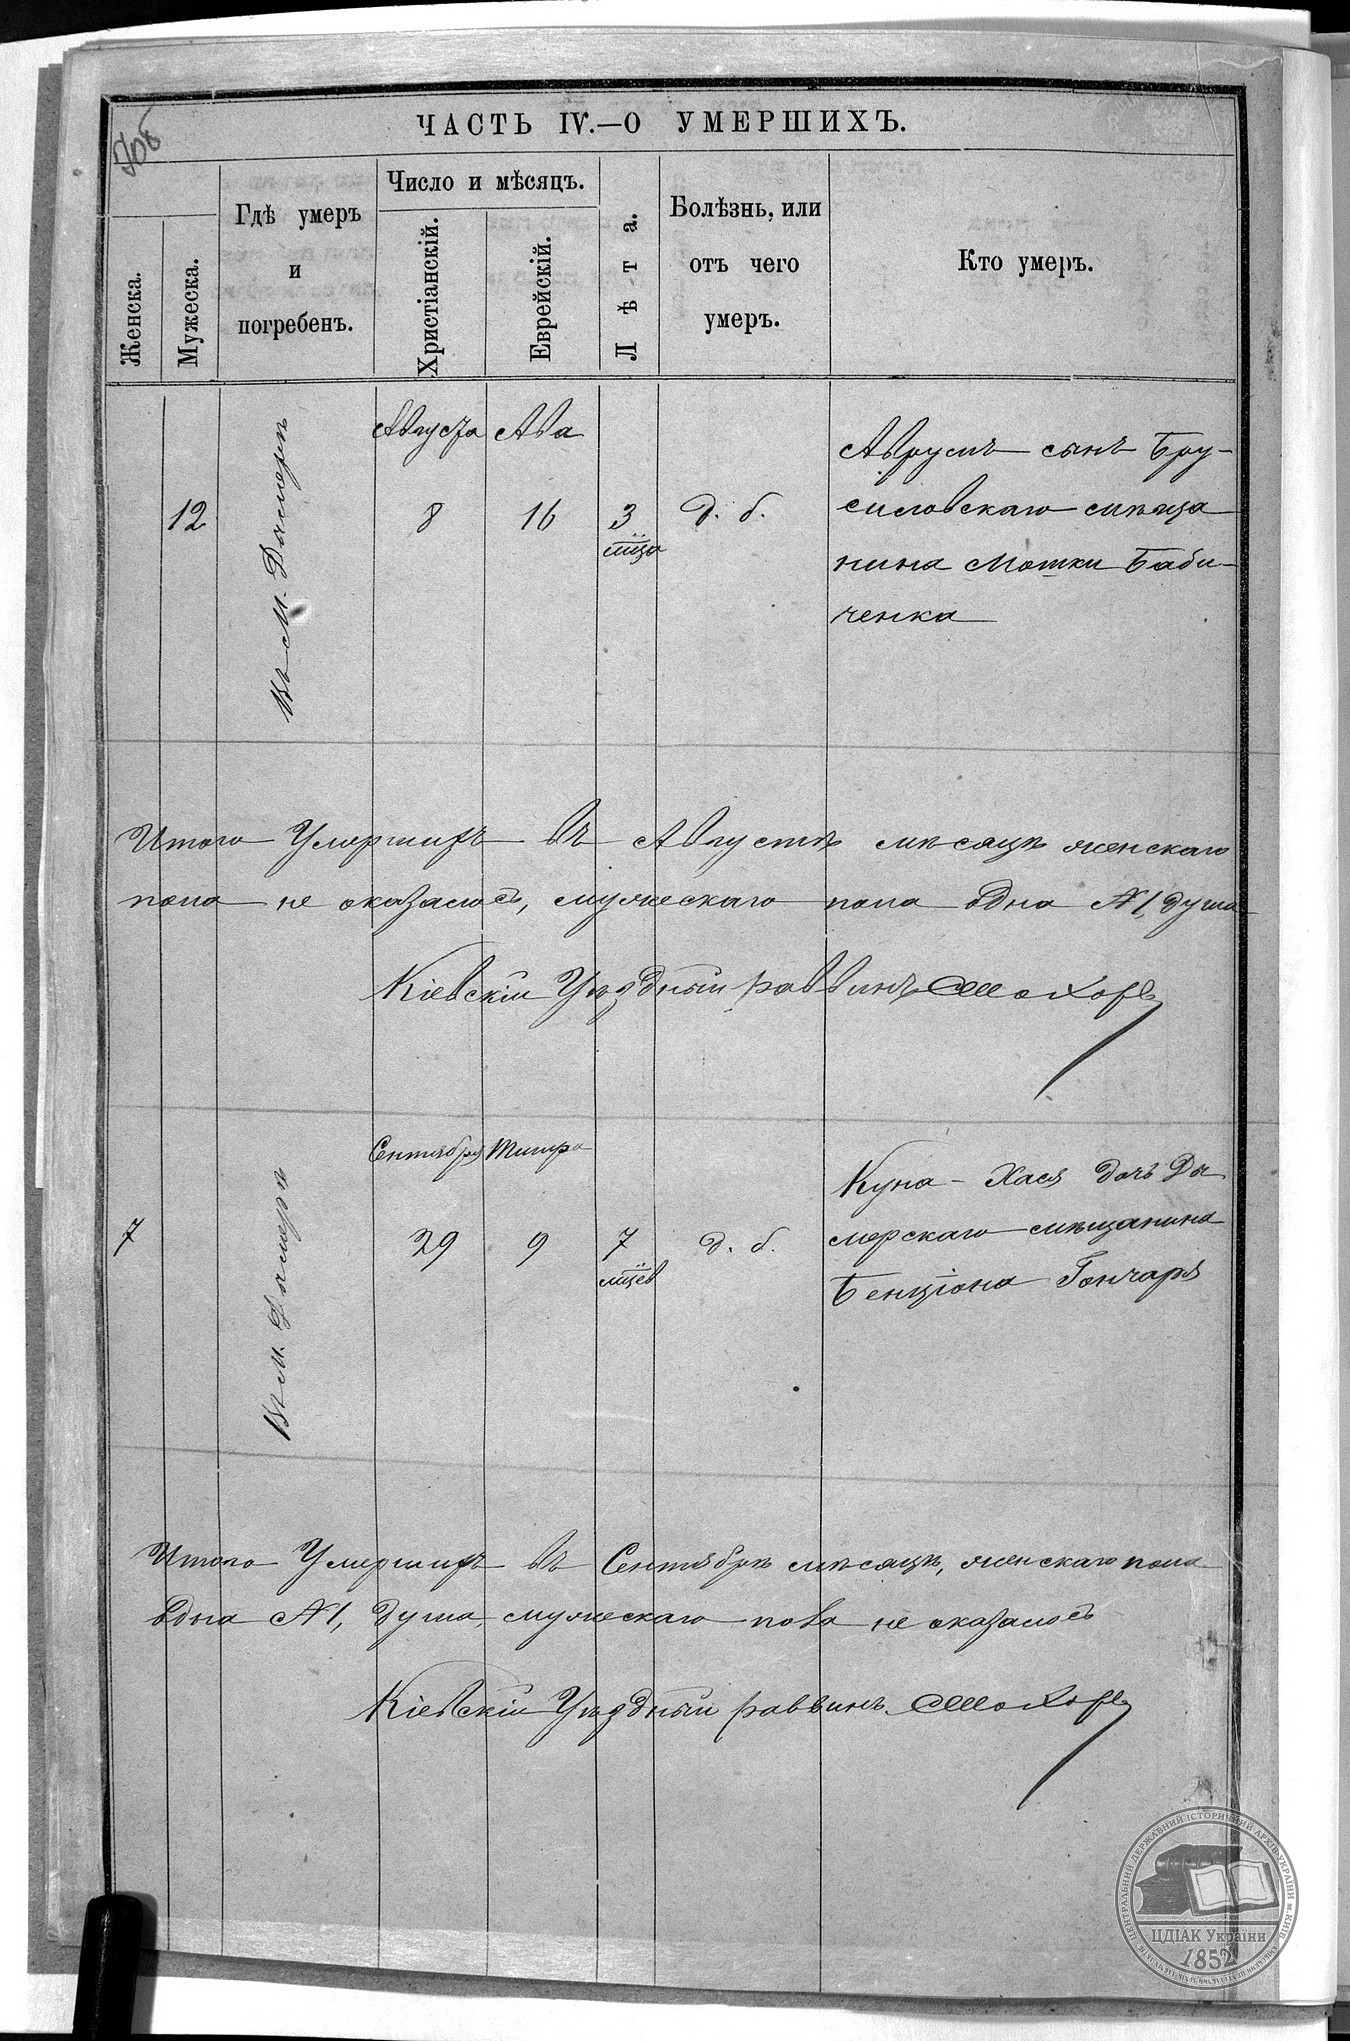 ЧАСТЬ IV.—О УМЕРШИХЪ.
Женска.
Мужеска.
Гдѣ умеръ
и
погребенъ.
Число и мѣсяцъ.
Христіанскій.
Еврейскій.
Лѣта.
Болѣзнь, или
отъ чего
умеръ.
Кто умеръ.
12
Въ М. Дымерѣ
Августа
8
Ава
16
3
мца
д. б.
Аврумъ сынъ Бру-
силовскаго мѣща
нина Мошки Баби-
ченка
Итого Умершихъ въ Августѣ мѣсяцѣ женскаго
пола не оказалось, мужескаго пола одна №1, душа
Кіевскій Уѣздный раввинъ
7
Въ М. Дымерѣ
Сентября
29
Тишра
9
7
мцев
д. б.
Куна - Хася дочь Ды
мерскаго мѣщанина
Бенціона Гончаря
Итого Умершихъ въ Сентябрѣ мѣсяцѣ, женскаго пола
одна №1, душа, мужескаго пола не оказалось
Кіевскій Уѣздный раввинъ
ЦЕНТРАЛЬНИЙ ДЕРЖАВНИЙ ІСТОРИЧНИЙ АРХІВ УКРАЇНИ м.КИЇВ
ЦДІАК України
1852